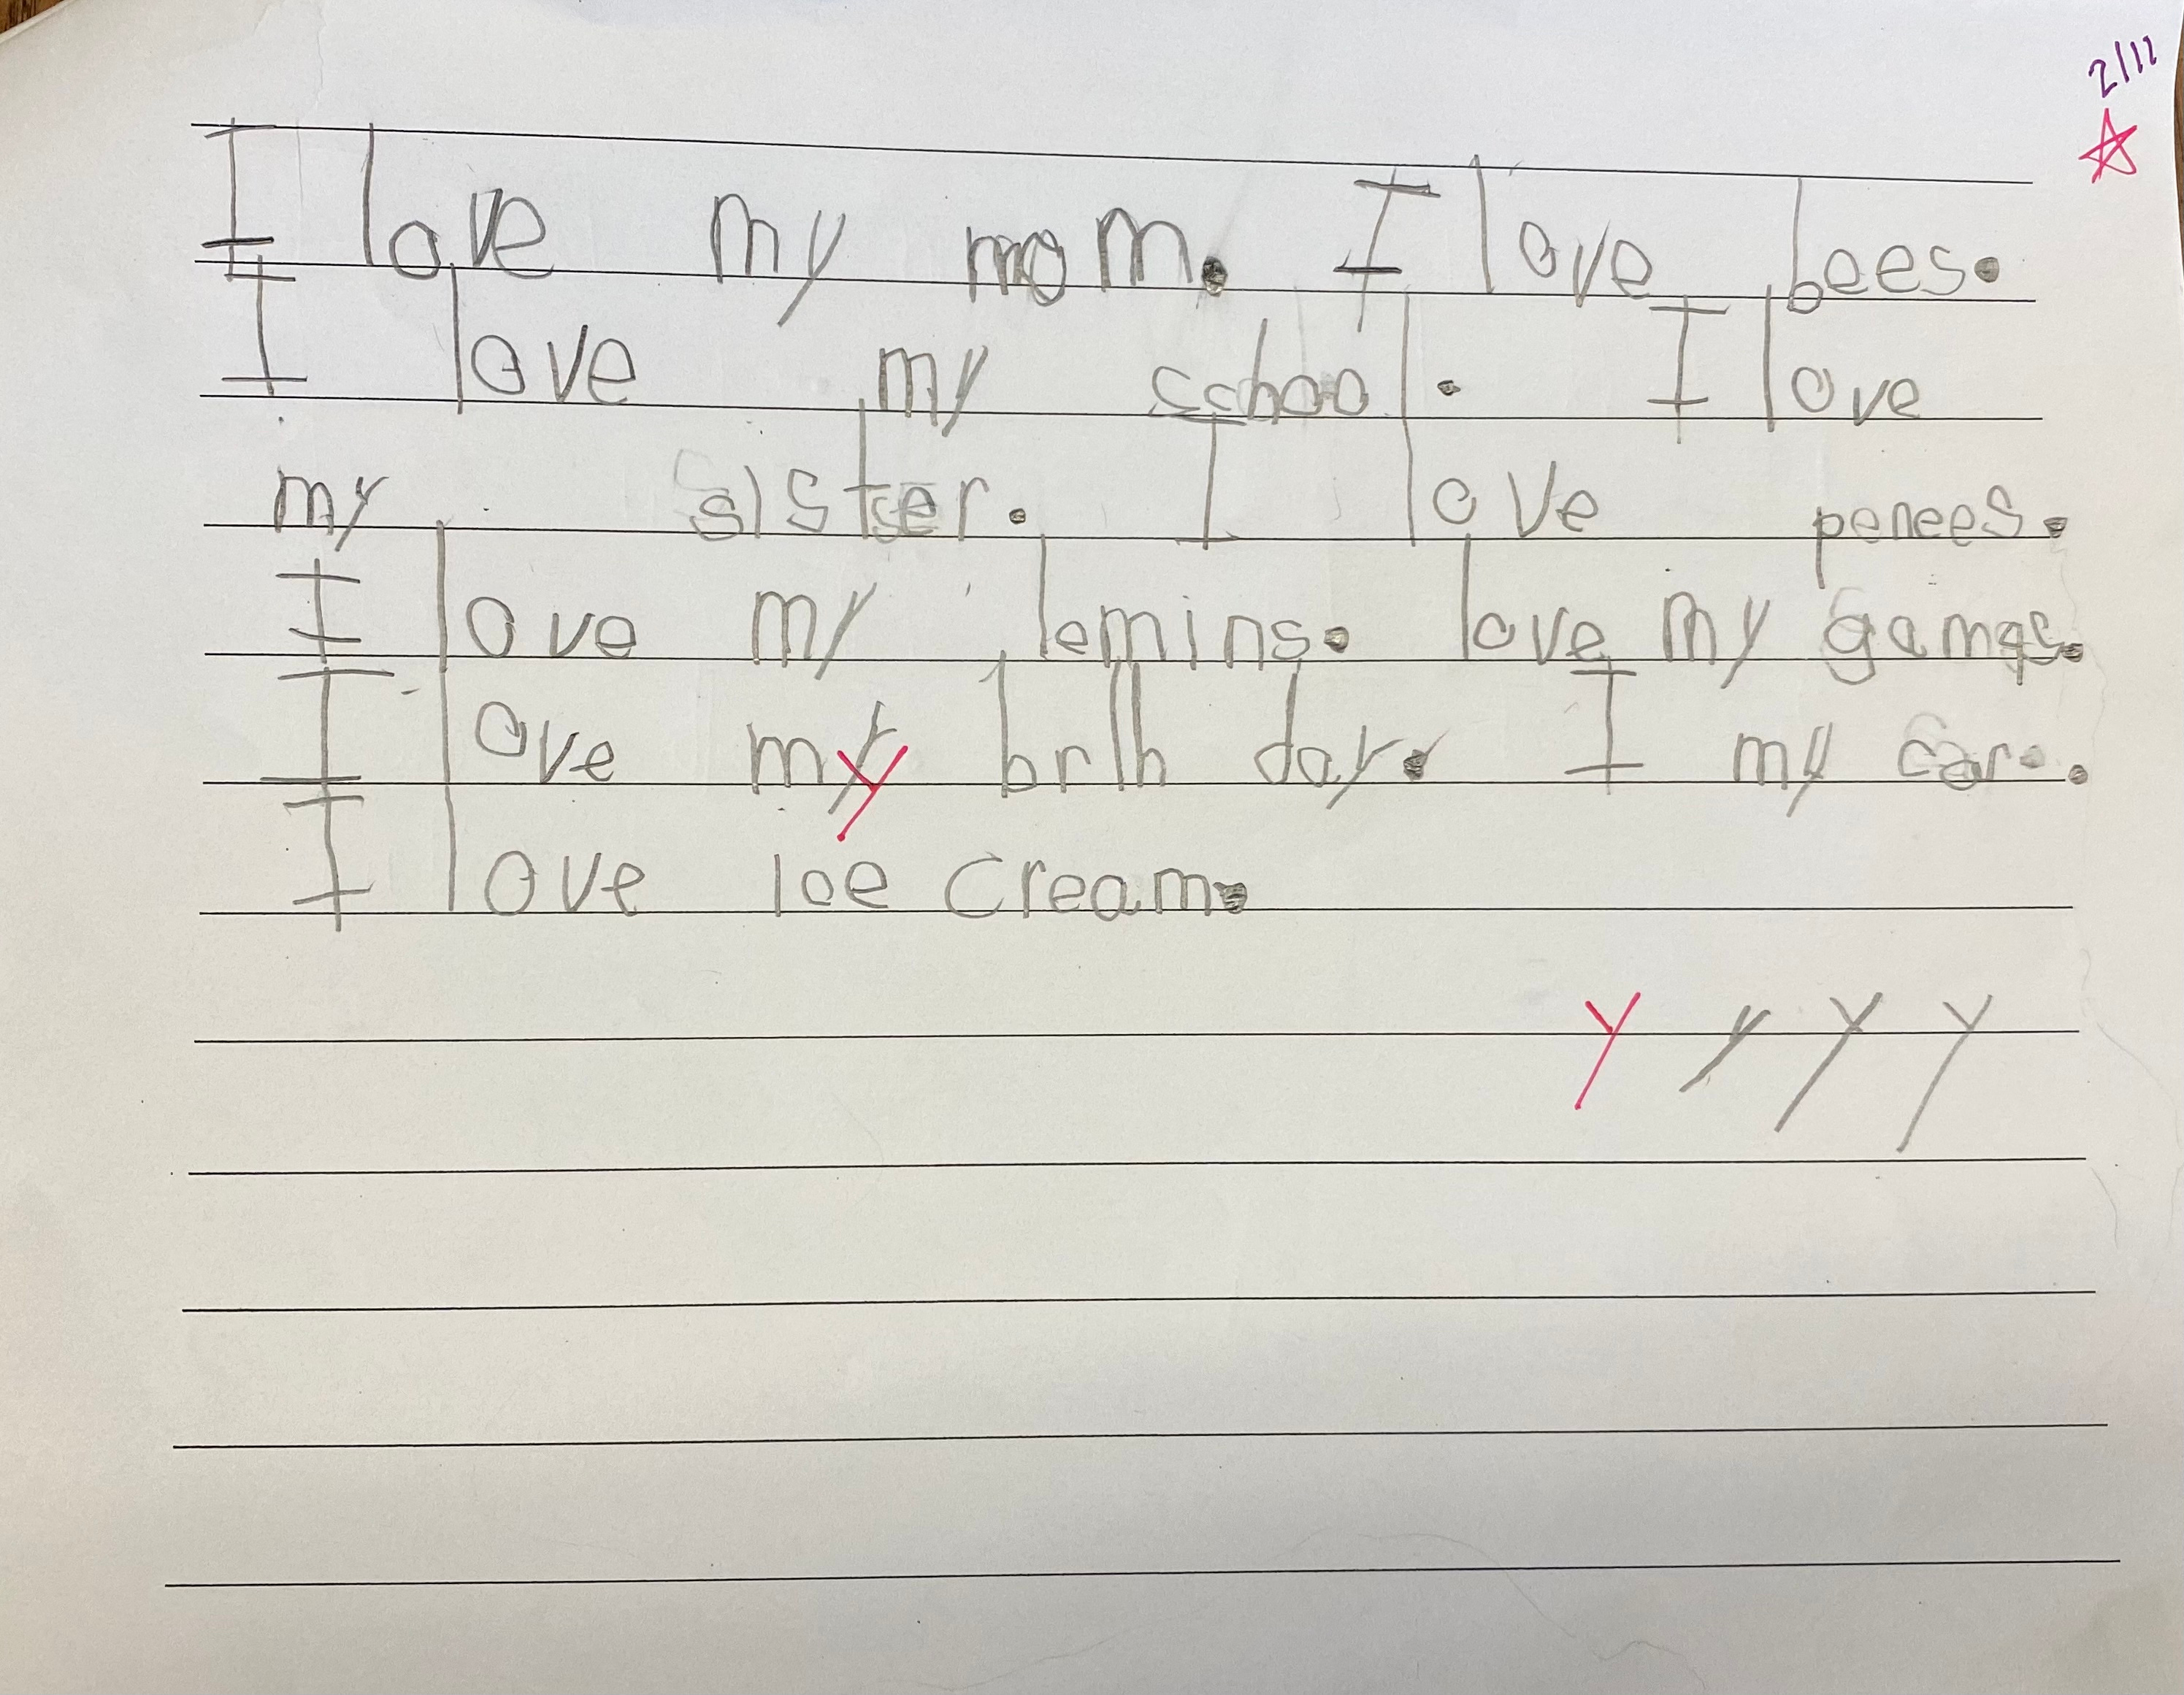 2/12
I love my mom. I love bees.
I love my school. I love
my sister. I love penees.
I love my lemins. love my games.
I love my brlh day. I my car.
I love Ice cream.
y y y y